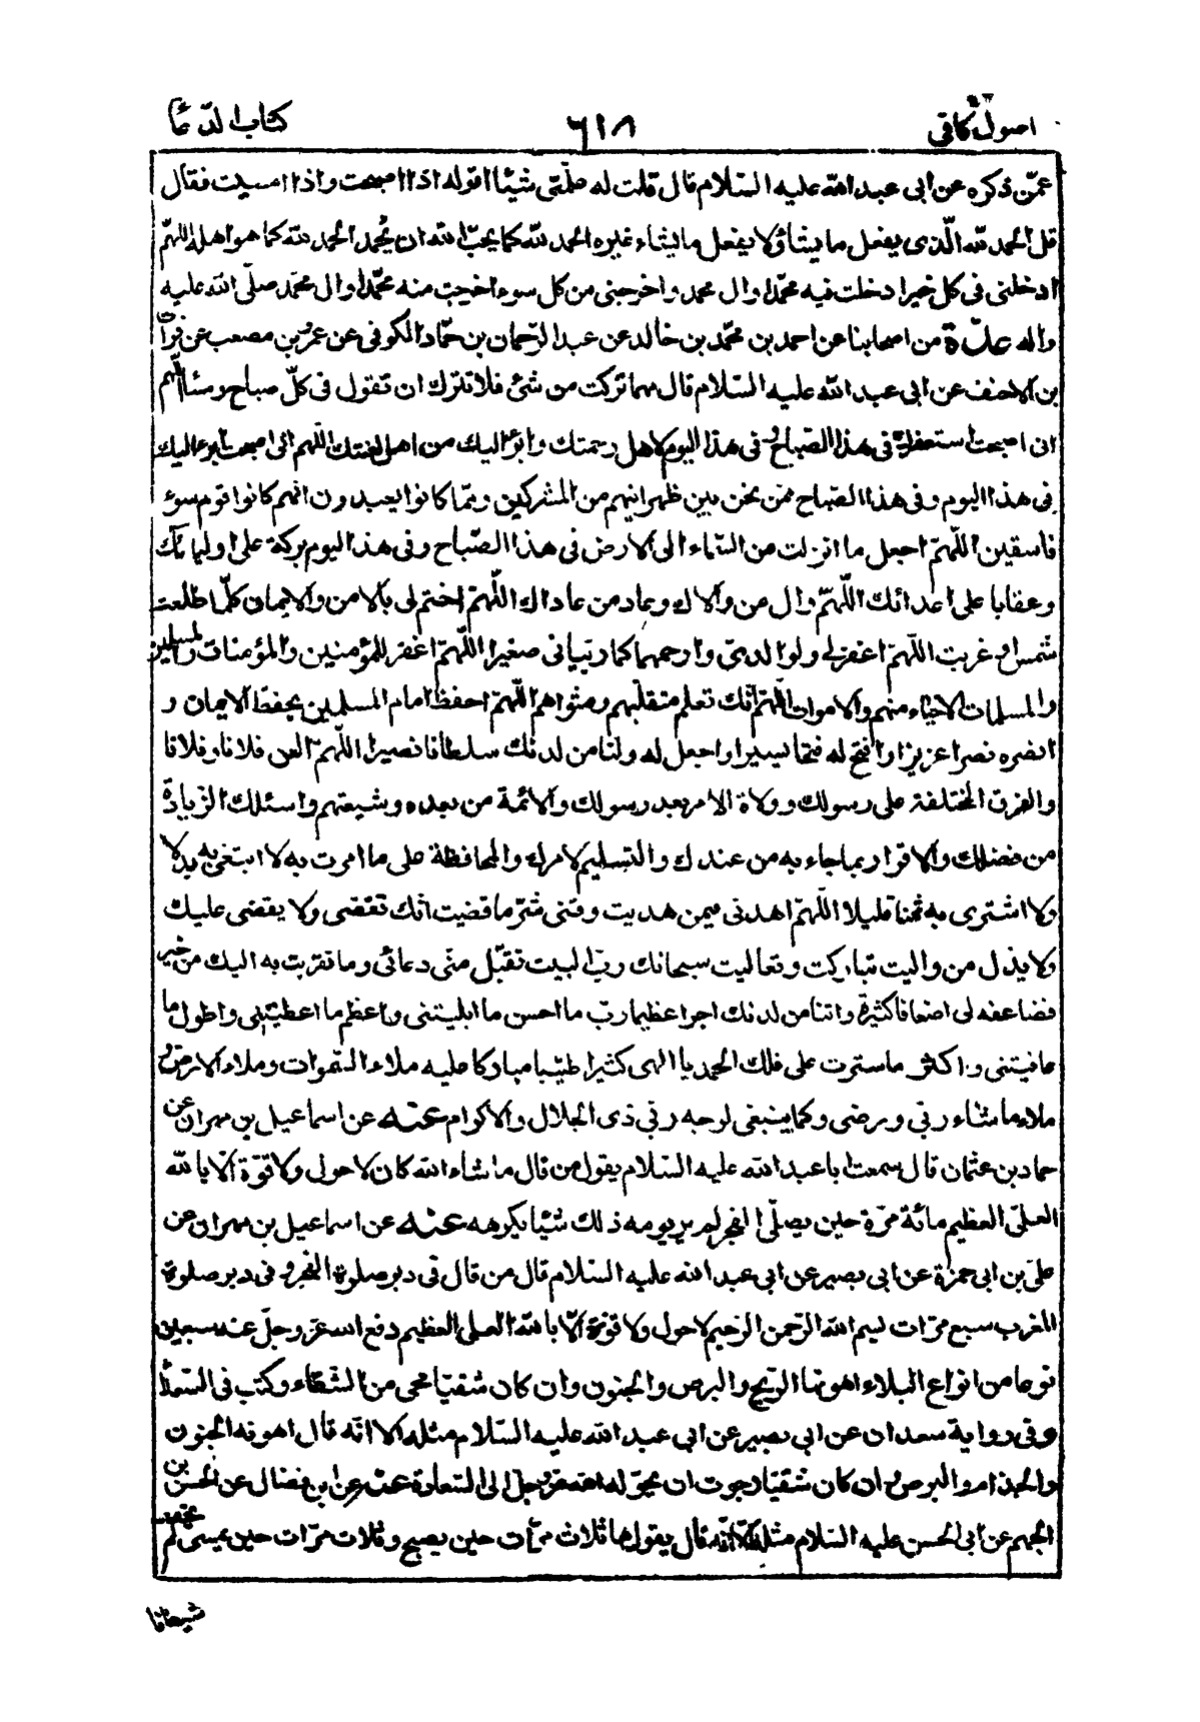 اصول كافى ٦١٨ كتاب الدّعاء
عمّن ذكره عن ابى عبد الله عليه السّلام قال قلت له علّمنى شيئا اقوله اذا اصبحت واذا امسيت فقال
قل الحمد لله الّذى يفعل ما يشاء ولا يفعل ما يشاء غيره الحمد لله كما يحبّ الله ان يُحمد الحمد لله كما هو اهله اللهمّ
ادخلنى فى كل خير ادخلت فيه محمّدا وال محمد واخرجنى من كل سوء اخرجت منه محمّدا وال محمّد صلّى الله عليه
واله عدّة من اصحابنا عن احمد بن محمّد بن خالد عن عبد الرّحمان بن حمّاد الكوفى عن عمرو بن مصعب عن فرات
بن الاحنف عن ابى عبد الله عليه السّلام قال مهما تركت من شئ فلا تترك ان تقول فى كلّ صباح ومساء اللّهم
انى اصبحت استغفرك فى هذا الصّباح وفى هذا اليوم لاهل رحمتك وابرء اليك من اهل لعنتك اللّهم انى اصبحت ابرء اليك
فى هذا اليوم وفى هذا الصّباح ممّن نحن بين ظهرانيهم من المشركين وممّا كانوا يعبدون انهم كانوا قوم سوء
فاسقين اللّهمّ اجعل ما انزلت من السّماء الى الارض فى هذا الصّباح وفى هذا اليوم بركة على اوليائك
وعقابا على اعدائك اللّهمّ وال من والاك وعاد من عاداك اللّهمّ اختم لى بالامن والايمان كلّما طلعت
شمس او غربت اللّهمّ اغفر لى ولوالدىّ وارحمهما كما ربّيانى صغيرا اللّهمّ اغفر للمؤمنين والمؤمنات والمسلمين
والمسلمات الاحياء منهم والاموات اللّهمّ انّك تعلم متقلّبهم ومثواهم اللّهمّ احفظ امام المسلمين بحفظ الايمان و
انصره نصرا عزيزا وافتح له فتحا يسيرا واجعل له ولنا من لدنك سلطانا نصيرا اللّهمّ العن فلانا وفلانا
والفرق المختلفة على رسولك وولاة الامر بعد رسولك والائمة من بعده وشيعتهم واسئلك الزيادة
من فضلك والاقرار بما جاء به من عندك والتسليم لامرك والمحافظة على ما امرت به لا ابتغى به بدلا
ولا اشترى به ثمنا قليلا اللّهمّ اهدنى فيمن هديت وقنى شرّ ما قضيت انّك تقضى ولا يقضى عليك
ولا يذل من واليت تباركت وتعاليت سبحانك ربّ البيت تقبّل منّى دعائى وما تقربت به اليك من خير
فضاعفه لى اضعافا كثيرة واتنا من لدنك اجرا عظيما ربّ ما احسن ما ابليتنى واعظم ما اعطيتنى واطول ما
عافيتنى واكثر ما سترت على فلك الحمد يا الهى كثيرا طيّبا مباركا عليه ملاء السّموات وملاء الارض و
ملاء ما شاء ربّى ورضى وكما ينبغى لوجه ربّى ذى الجلال والاكرام عنه عن اسماعيل بن مهران عن
حماد بن عثمان قال سمعت ابا عبد الله عليه السّلام يقول من قال ما شاء الله كان لا حول ولا قوّة الّا بالله
العلىّ العظيم مائة مرّة حين يصلّى الفجر لم ير يومه ذلك شيئا يكرهه عنه عن اسماعيل بن مهران عن
علىّ بن ابى حمزة عن ابى بصير عن ابى عبد الله عليه السّلام قال من قال فى دبر صلوة الفجر و فى دبر صلوة
المغرب سبع مرّات بسم الله الرّحمن الرّحيم لا حول ولا قوّة الّا بالله العلى العظيم دفع الله عز وجلّ عنه سبعين
نوعا من انواع البلاء اهونها الرّيح والبرص والجنون وان كان شقيّا محى من الشقاء وكتب فى السّعداء
وفى رواية سعدان عن ابى بصير عن ابى عبد الله عليه السّلام مثله الّا انّه قال اهونه الجنون
والجذام والبرص وان كان شقيّا رجوت ان يحوّله الله عز وجل الى السّعادة عنه عن ابن فضال عن الحسن بن
الجهم عن ابى الحسن عليه السّلام مثله الّا انّه قال يقولها ثلاث مرّات حين يصبح وثلاث مرّات حين يمسى لم يخف
شيطانا